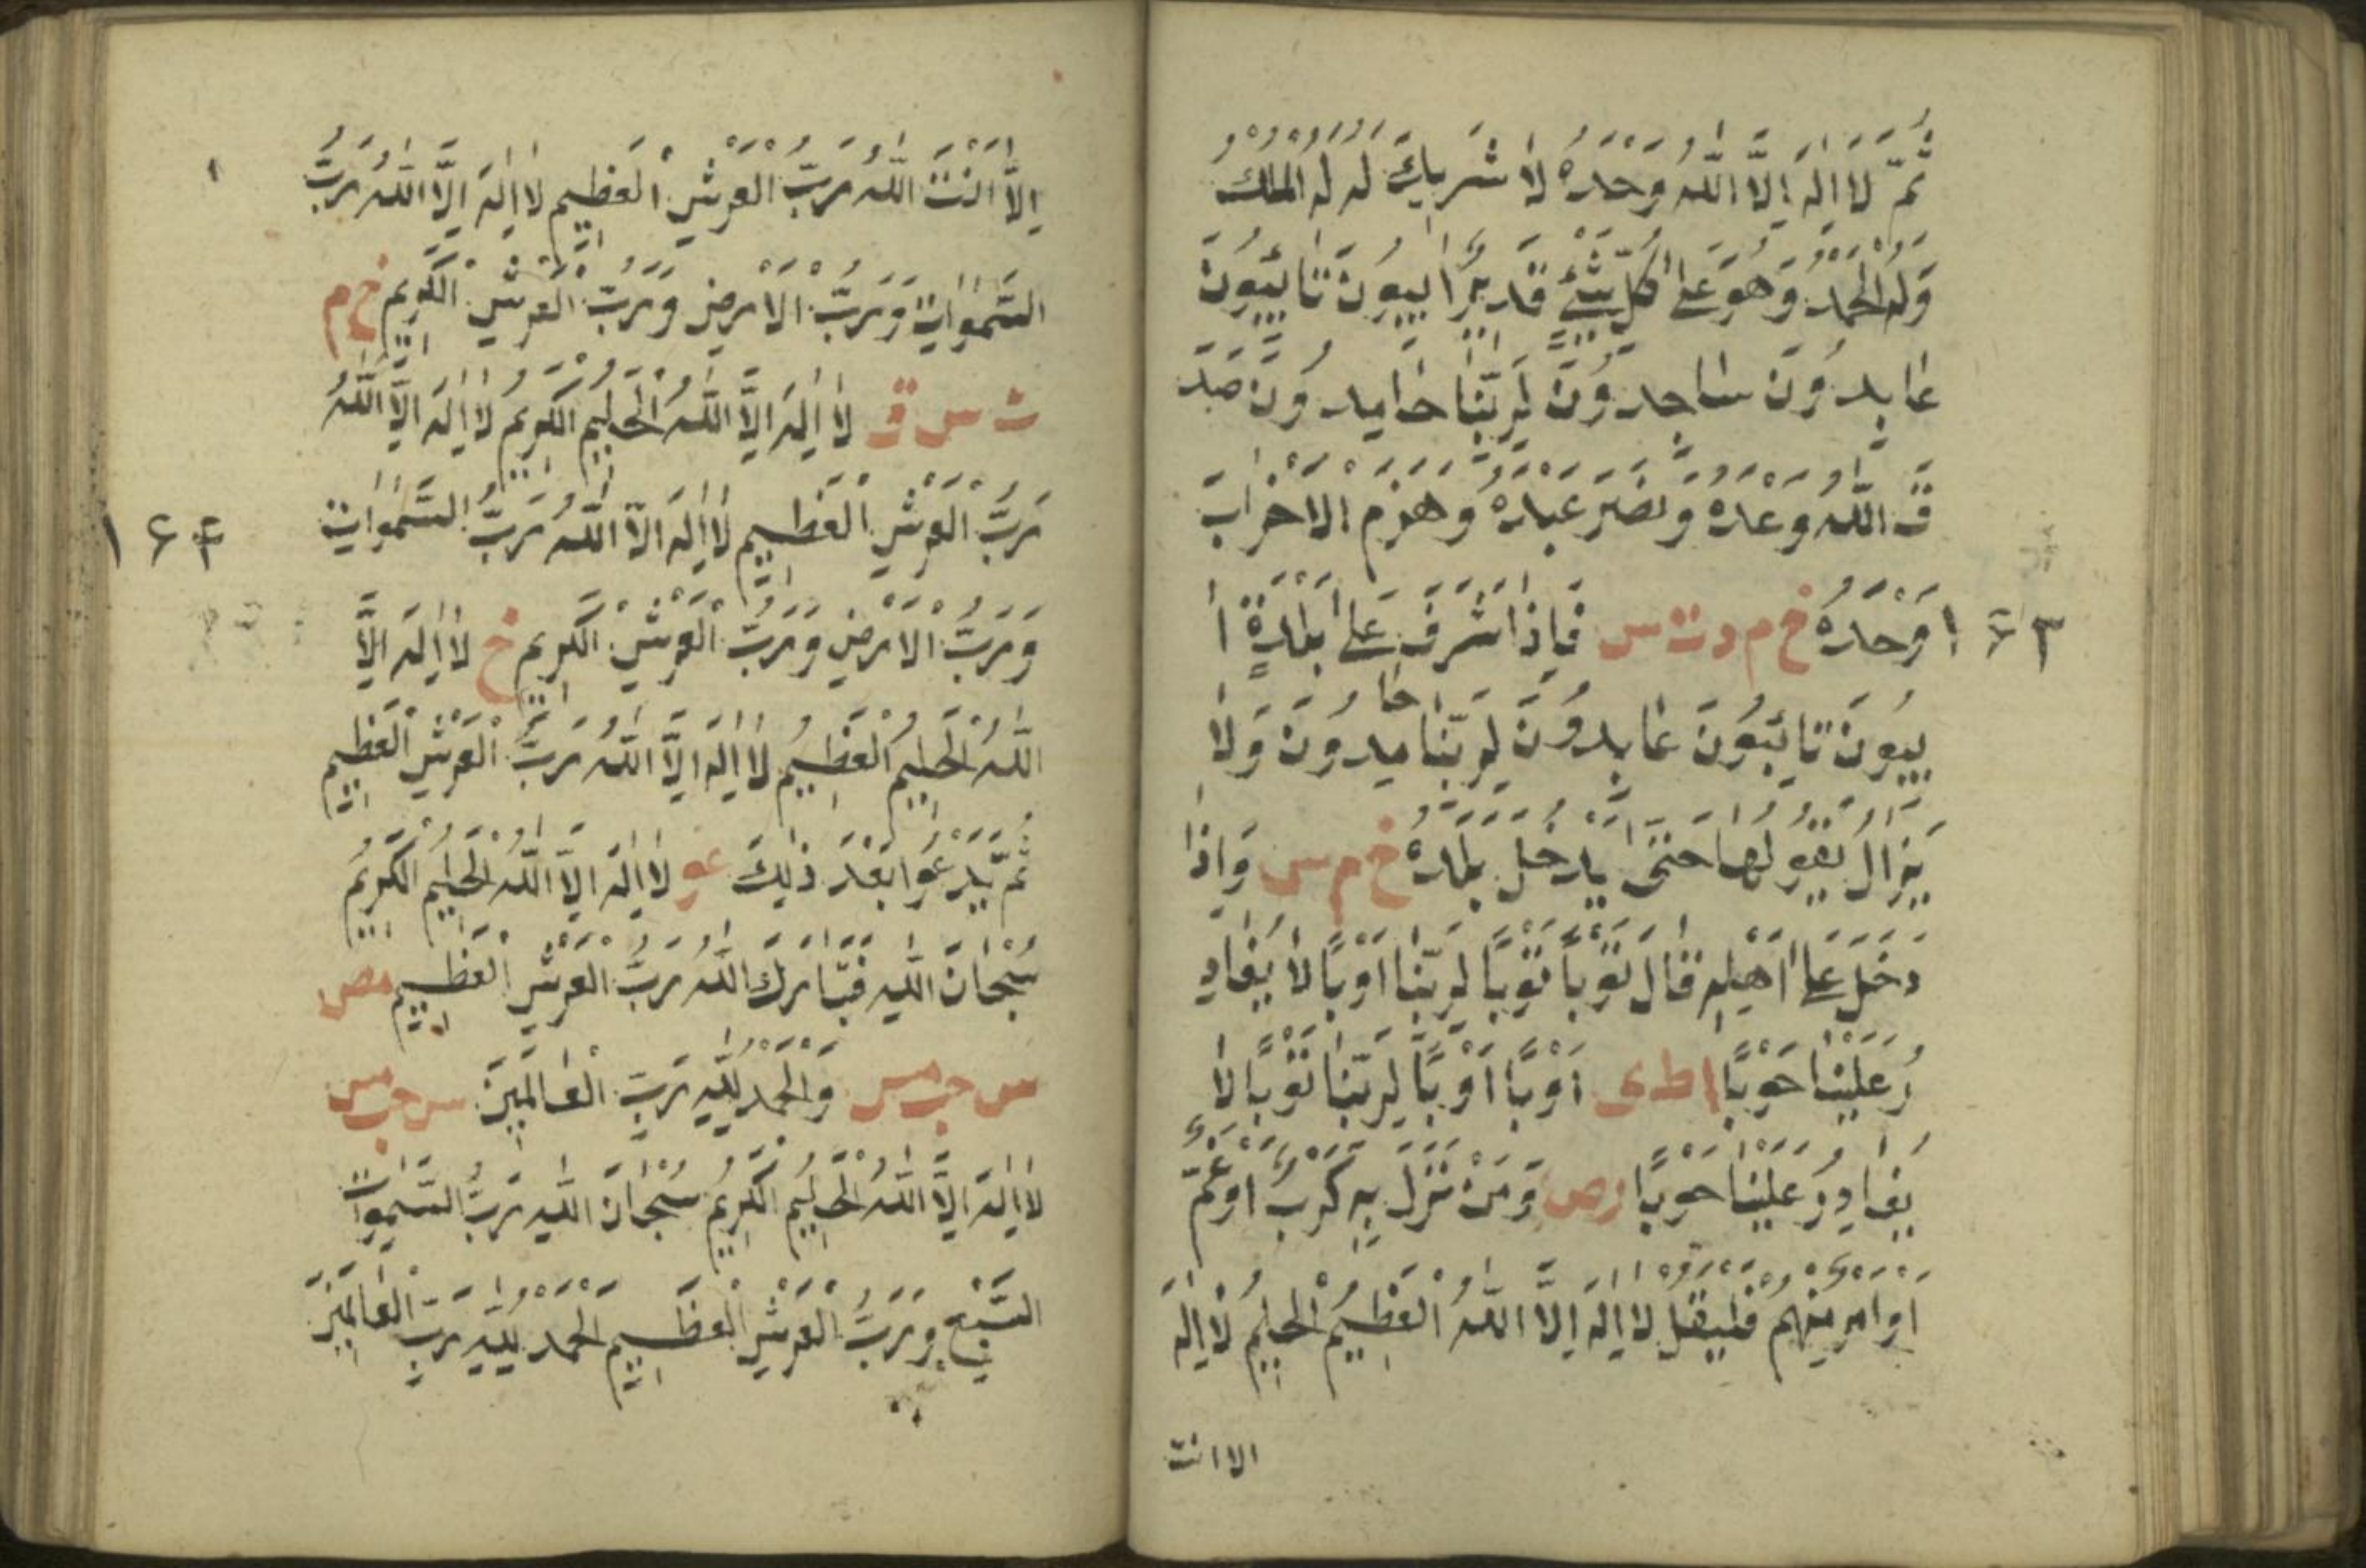 ثُمَّ لَا اِلٰهَ اِلَّا اللّٰهُ وَحْدَهُ لَا شَرِيكَ لَهُ لَهُ الْمُلْكُ
وَلَهُ الْحَمْدُ وَهُوَ عَلٰى كُلِّ شَيْءٍ قَدِيرٌ اٰيِبُونَ تَائِبُونَ
عَابِدُونَ سَاجِدُونَ لِرَبِّنَا حَامِدُونَ صَدَ
قَ اللّٰهُ وَعْدَهُ وَنَصَرَ عَبْدَهُ وَهَزَمَ الْاَحْزَابَ
وَحْدَهُ خ م د ت س فَاِذَا اَشْرَفَ عَلٰى بَلْدَةٍ اٰ
١٦٣
يِبُونَ تَائِبُونَ عَابِدُونَ لِرَبِّنَا حَامِدُونَ وَلَا
يَزَالُ يَقُولُهَا حَتّٰى يَدْخُلَ بَلَدَهُ خ م س وَاِذَا
دَخَلَ عَلٰى اَهْلِهِ قَالَ تَوْبًا تَوْبًا لِرَبِّنَا اَوْبًا لَا يُغَادِ
رُ عَلَيْنَا حَوْبًا ا ط ى اَوْبًا اَوْبًا لِرَبِّنَا تَوْبًا لَا
يُغَادِرُ عَلَيْنَا حَوْبًا رص وَمَنْ نَزَلَ بِهِ كَرْبٌ اَوْ غَمٌّ
اَوْ اَمْرٌ مُهِمٌّ فَلْيَقُلْ لَا اِلٰهَ اِلَّا اللّٰهُ الْعَظِيمُ الْحَلِيمُ لَا اِلٰهَ
الا انت
اِلَّا اَنْتَ اللّٰهُ رَبُّ الْعَرْشِ الْعَظِيمِ لَا اِلٰهَ اِلَّا اللّٰهُ رَبُّ
السَّمٰوَاتِ وَرَبُّ الْاَرْضِ وَرَبُّ الْعَرْشِ الْكَرِيمِ خ م
ت س ق لَا اِلٰهَ اِلَّا اللّٰهُ الْحَلِيمُ الْكَرِيمُ لَا اِلٰهَ اِلَّا اللّٰهُ
رَبُّ الْعَرْشِ الْعَظِيمِ لَا اِلٰهَ اِلَّا اللّٰهُ رَبُّ السَّمٰوَاتِ
١٦٤
وَرَبُّ الْاَرْضِ وَرَبُّ الْعَرْشِ الْكَرِيمِ خ لَا اِلٰهَ اِلَّا
اللّٰهُ الْحَلِيمُ الْعَظِيمُ لَا اِلٰهَ اِلَّا اللّٰهُ رَبُّ الْعَرْشِ الْعَظِيمِ
ثُمَّ يَدْعُوا بَعْدَ ذٰلِكَ عو لَا اِلٰهَ اِلَّا اللّٰهُ الْحَلِيمُ الْكَرِيمُ
سُبْحَانَ اللّٰهِ فَتَبَارَكَ اللّٰهُ رَبُّ الْعَرْشِ الْعَظِيمِ مص
س حب مس وَالْحَمْدُ لِلّٰهِ رَبِّ الْعَالَمِينَ س حب مس
لَا اِلٰهَ اِلَّا اللّٰهُ الْحَلِيمُ الْكَرِيمُ سُبْحَانَ اللّٰهِ رَبُّ السَّمٰوَاتِ
السَّبْعِ وَرَبُّ الْعَرْشِ الْعَظِيمِ الْحَمْدُ لِلّٰهِ رَبِّ الْعَالَمِينَ